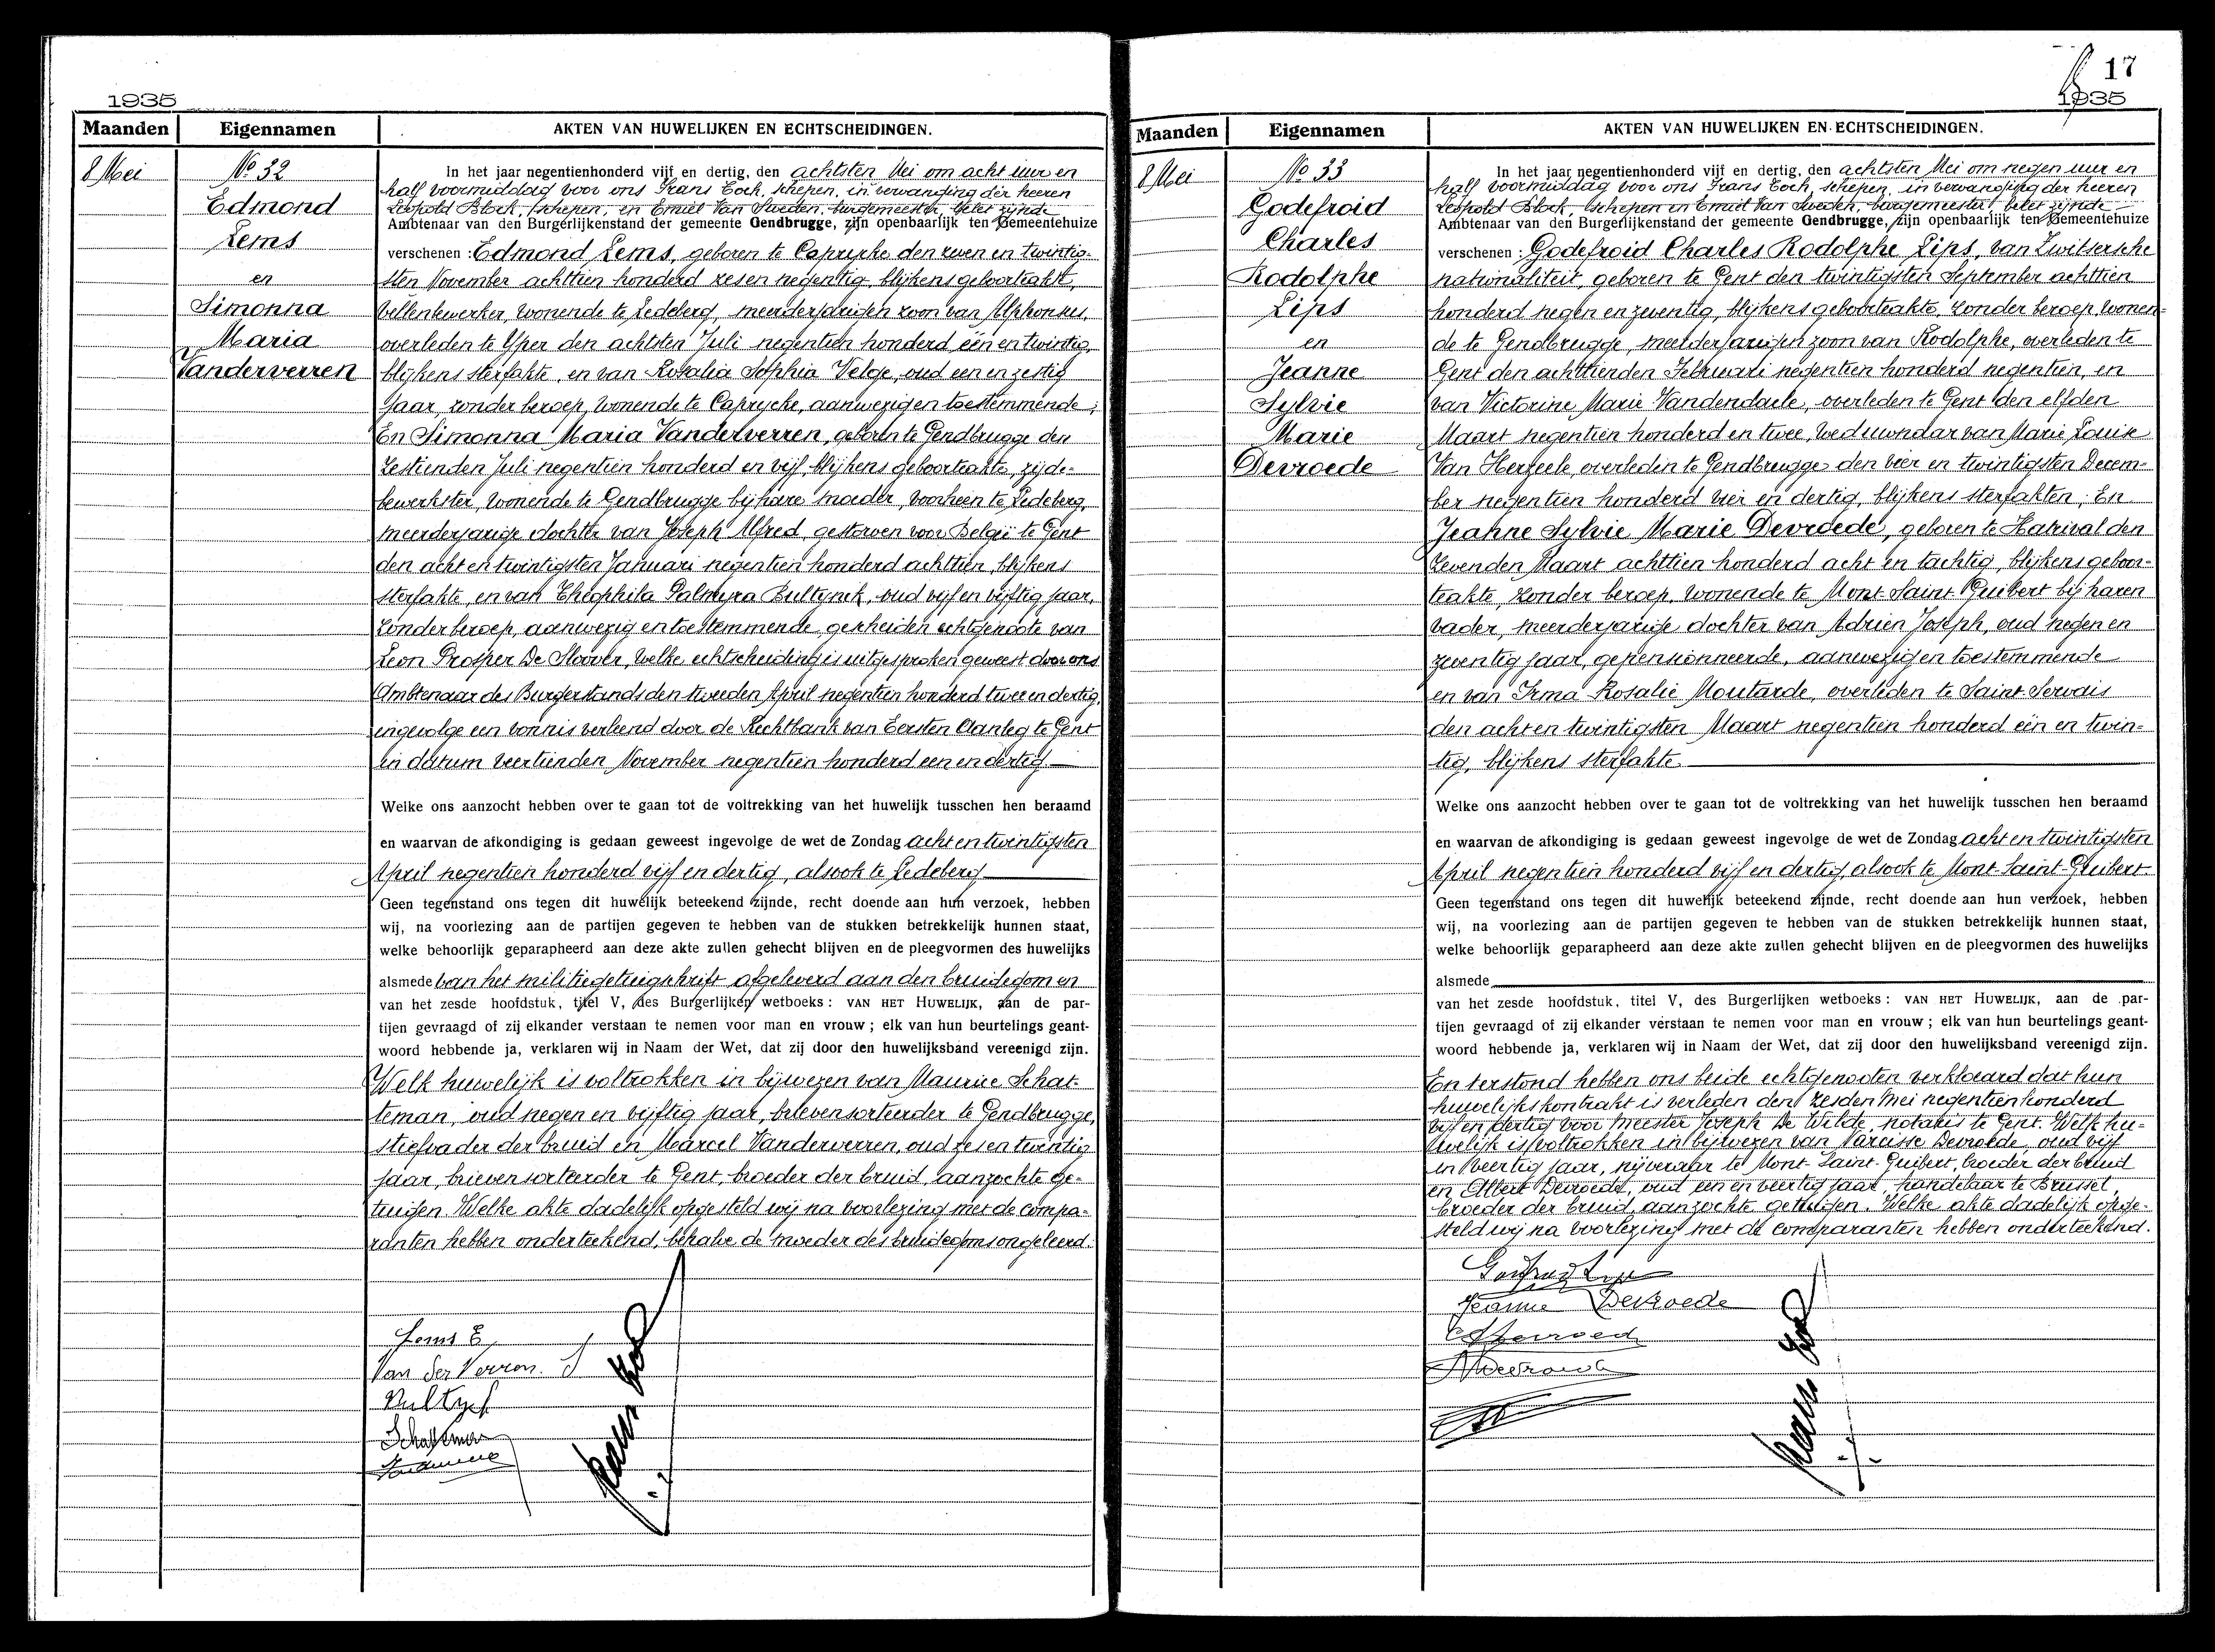 1935
Maanden
Eigennamen
AKTEN VAN HUWELIJKEN EN ECHTSCHEIDINGEN.
8 Mei
No 32
Edmond
Lems
en
Simonna
Maria
Vanderverren
In het jaar negentienhonderd vijf en dertig, den achtsten Mei om acht uur en
half voormiddag voor ons Frans Cock, schepen, in vervanging der heeren
Leopold Block, schepen, en Emiel Van Sweden, burgemeester belet zijnde
Ambtenaar van den Burgerlijkenstand der gemeente Gendbrugge, zijn openbaarlijk ten Gemeentehuize
verschenen : Edmond Lems, geboren te Caprycke den zeven en twintig-
sten November achttien honderd zes en negentig, blijkens geboorteakt,
vellenbewerker, wonende te Ledeberg, meerderjarigen zoon van Alphonsus,
overleden te Yper den achtsten Juli negentien honderd één en twintig,
blijkens sterfakte, en van Rosalia Sophia Velge, oud een en zestig
jaar, zonder beroep, wonende te Caprycke, aanwezig en toestemmende;
En Simonna Maria Vanderverren, geboren te Gendbrugge den
zestienden Juli negentien honderd en vijf, blijkens geboorteakte, zijde-
bewerkster, wonende te Gendbrugge bij hare moeder, voorheen te Ledeberg,
meerderjarige dochter van Joseph Alfred, gestorven voor België te Gent
den acht en twintigsten Januari negentien honderd achttien, blijkens
sterfakte, en van Theophila Palmyra Bultynck, oud vijf en vijftig jaar,
zonder beroep, aanwezig en toestemmende, gescheiden echtgenoote van
Leon Prosper De Sloover, welke echtscheiding is uitgesproken geweest door ons
Ambtenaar des Burgerstands den tweeden April negentien honderd twee en dertig,
ingevolge een vonnis verleend door de Rechtbank van Eersten Aanleg te Gent
in datum veertienden November negentien honderd een en dertig
Welke ons aanzocht hebben over te gaan tot de voltrekking van het huwelijk tusschen hen beraamd
en waarvan de afkondiging is gedaan geweest ingevolge de wet de Zondag acht en twintigsten
April negentien honderd vijf en dertig, alsook te Ledeberg
Geen tegenstand ons tegen dit huwelijk beteekend zijnde, recht doende aan hun verzoek, hebben
wij, na voorlezing aan de partijen gegeven te hebben van de stukken betrekkelijk hunnen staat,
welke behoorlijk geparapheerd aan deze akte zullen gehecht blijven en de pleegvormen des huwelijks
alsmede van het militiegetuigschrift afgeleverd aan den bruidegom en
van het zesde hoofdstuk, titel V, des Burgerlijken wetboeks : VAN HET HUWELIJK, aan de par-
tijen gevraagd of zij elkander verstaan te nemen voor man en vrouw ; elk van hun beurtelings geant-
woord hebbende ja, verklaren wij in Naam der Wet, dat zij door den huwelijksband vereenigd zijn.
Welk huwelijk is voltrokken in bijwezen van Maurice Schat-
teman, oud negen en vijftig jaar, brievensorteerder te Gendbrugge,
stiefvader der bruid en Marcel Vanderverren, oud zes en twintig
jaar, brievensorteerder te Gent, broeder der bruid, aanzochte ge-
tuigen. Welke akte dadelijk opgesteld wij na voorlezing met de compa-
ranten hebben onderteekend, behalve de moeder des bruidegoms ongeleerd.
Lems E
Van der Verren. S
Bultynck
Schatteman
17
1935
Maanden
Eigennamen
AKTEN VAN HUWELIJKEN EN ECHTSCHEIDINGEN.
8 Mei
No 33
Godefroid
Charles
Rodolphe
Lips
en
Jeanne
Sylvie
Marie
Devroede
In het jaar negentienhonderd vijf en dertig, den achtsten Mei om negen uur en
half voormiddag voor ons Frans Cock, schepen, in vervanging der heeren
Leopold Block, schepen en Emiel Van Sweden, burgemeester belet zijnde
Ambtenaar van den Burgerlijkenstand der gemeente Gendbrugge, zijn openbaarlijk ten Gemeentehuize
verschenen : Godefroid Charles Rodolphe Lips, van Zwitsersche
nationaliteit, geboren te Gent den twintigsten September achttien
honderd negen en zeventig, blijkens geboorteakte, zonder beroep, wonen-
de te Gendbrugge, meerderjarigen zoon van Rodolphe, overleden te
Gent den achttienden Februari negentien honderd negentien, en
van Victorine Marie Vandendaele, overleden te Gent den elfden
Maart negentien honderd en twee, weduwnaar van Marie Louise
Van Herzeele, overleden te Gendbrugge den vier en twintigsten Decem-
ber negentien honderd vier en dertig, blijkens sterfakten; En
Jeanne Sylvie Marie Devroede, geboren te Hatrival den
zevenden Maart achttien honderd acht en tachtig, blijkens geboor-
teakte, zonder beroep, wonende te Mont-Saint-Guibert bij haren
vader, meerderjarige dochter van Adrien Joseph, oud negen en
zeventig jaar, gepensionneerde, aanwezig en toestemmende
en van Irma Rosalie Moutarde, overleden te Saint-Servais
den acht en twintigsten Maart negentien honderd één en twin-
tig, blijkens sterfakte.
Welke ons aanzocht hebben over te gaan tot de voltrekking van het huwelijk tusschen hen beraamd
en waarvan de afkondiging is gedaan geweest ingevolge de wet de Zondag acht en twintigsten
April negentien honderd vijf en dertig, alsook te Mont-Saint-Guibert.
Geen tegenstand ons tegen dit huwelijk beteekend zijnde, recht doende aan hun verzoek, hebben
wij, na voorlezing aan de partijen gegeven te hebben van de stukken betrekkelijk hunnen staat,
welke behoorlijk geparapheerd aan deze akte zullen gehecht blijven en de pleegvormen des huwelijks
alsmede
van het zesde hoofdstuk, titel V, des Burgerlijken wetboeks : VAN HET HUWELIJK, aan de par-
tijen gevraagd of zij elkander verstaan te nemen voor man en vrouw ; elk van hun beurtelings geant-
woord hebbende ja, verklaren wij in Naam der Wet, dat zij door den huwelijksband vereenigd zijn.
En terstond hebben ons beide echtgenooten verklaard dat hun
huwelijkskontrakt is verleden den zesden Mei negentien honderd
vijf en dertig voor Meester Joseph De Wilde, notaris te Gent. Welk hu-
welijk is voltrokken in bijwezen van Narcisse Devroede, oud vijf
en veertig jaar, nijveraar te Mont-Saint-Guibert, broeder der bruid
en Albert Devroede, oud een en veertig jaar, handelaar te Brussel,
broeder der bruid, aanzochte getuigen. Welke akte dadelijk opge-
steld wij na voorlezing met de comparanten hebben onderteekend.
Jeanne Devroede